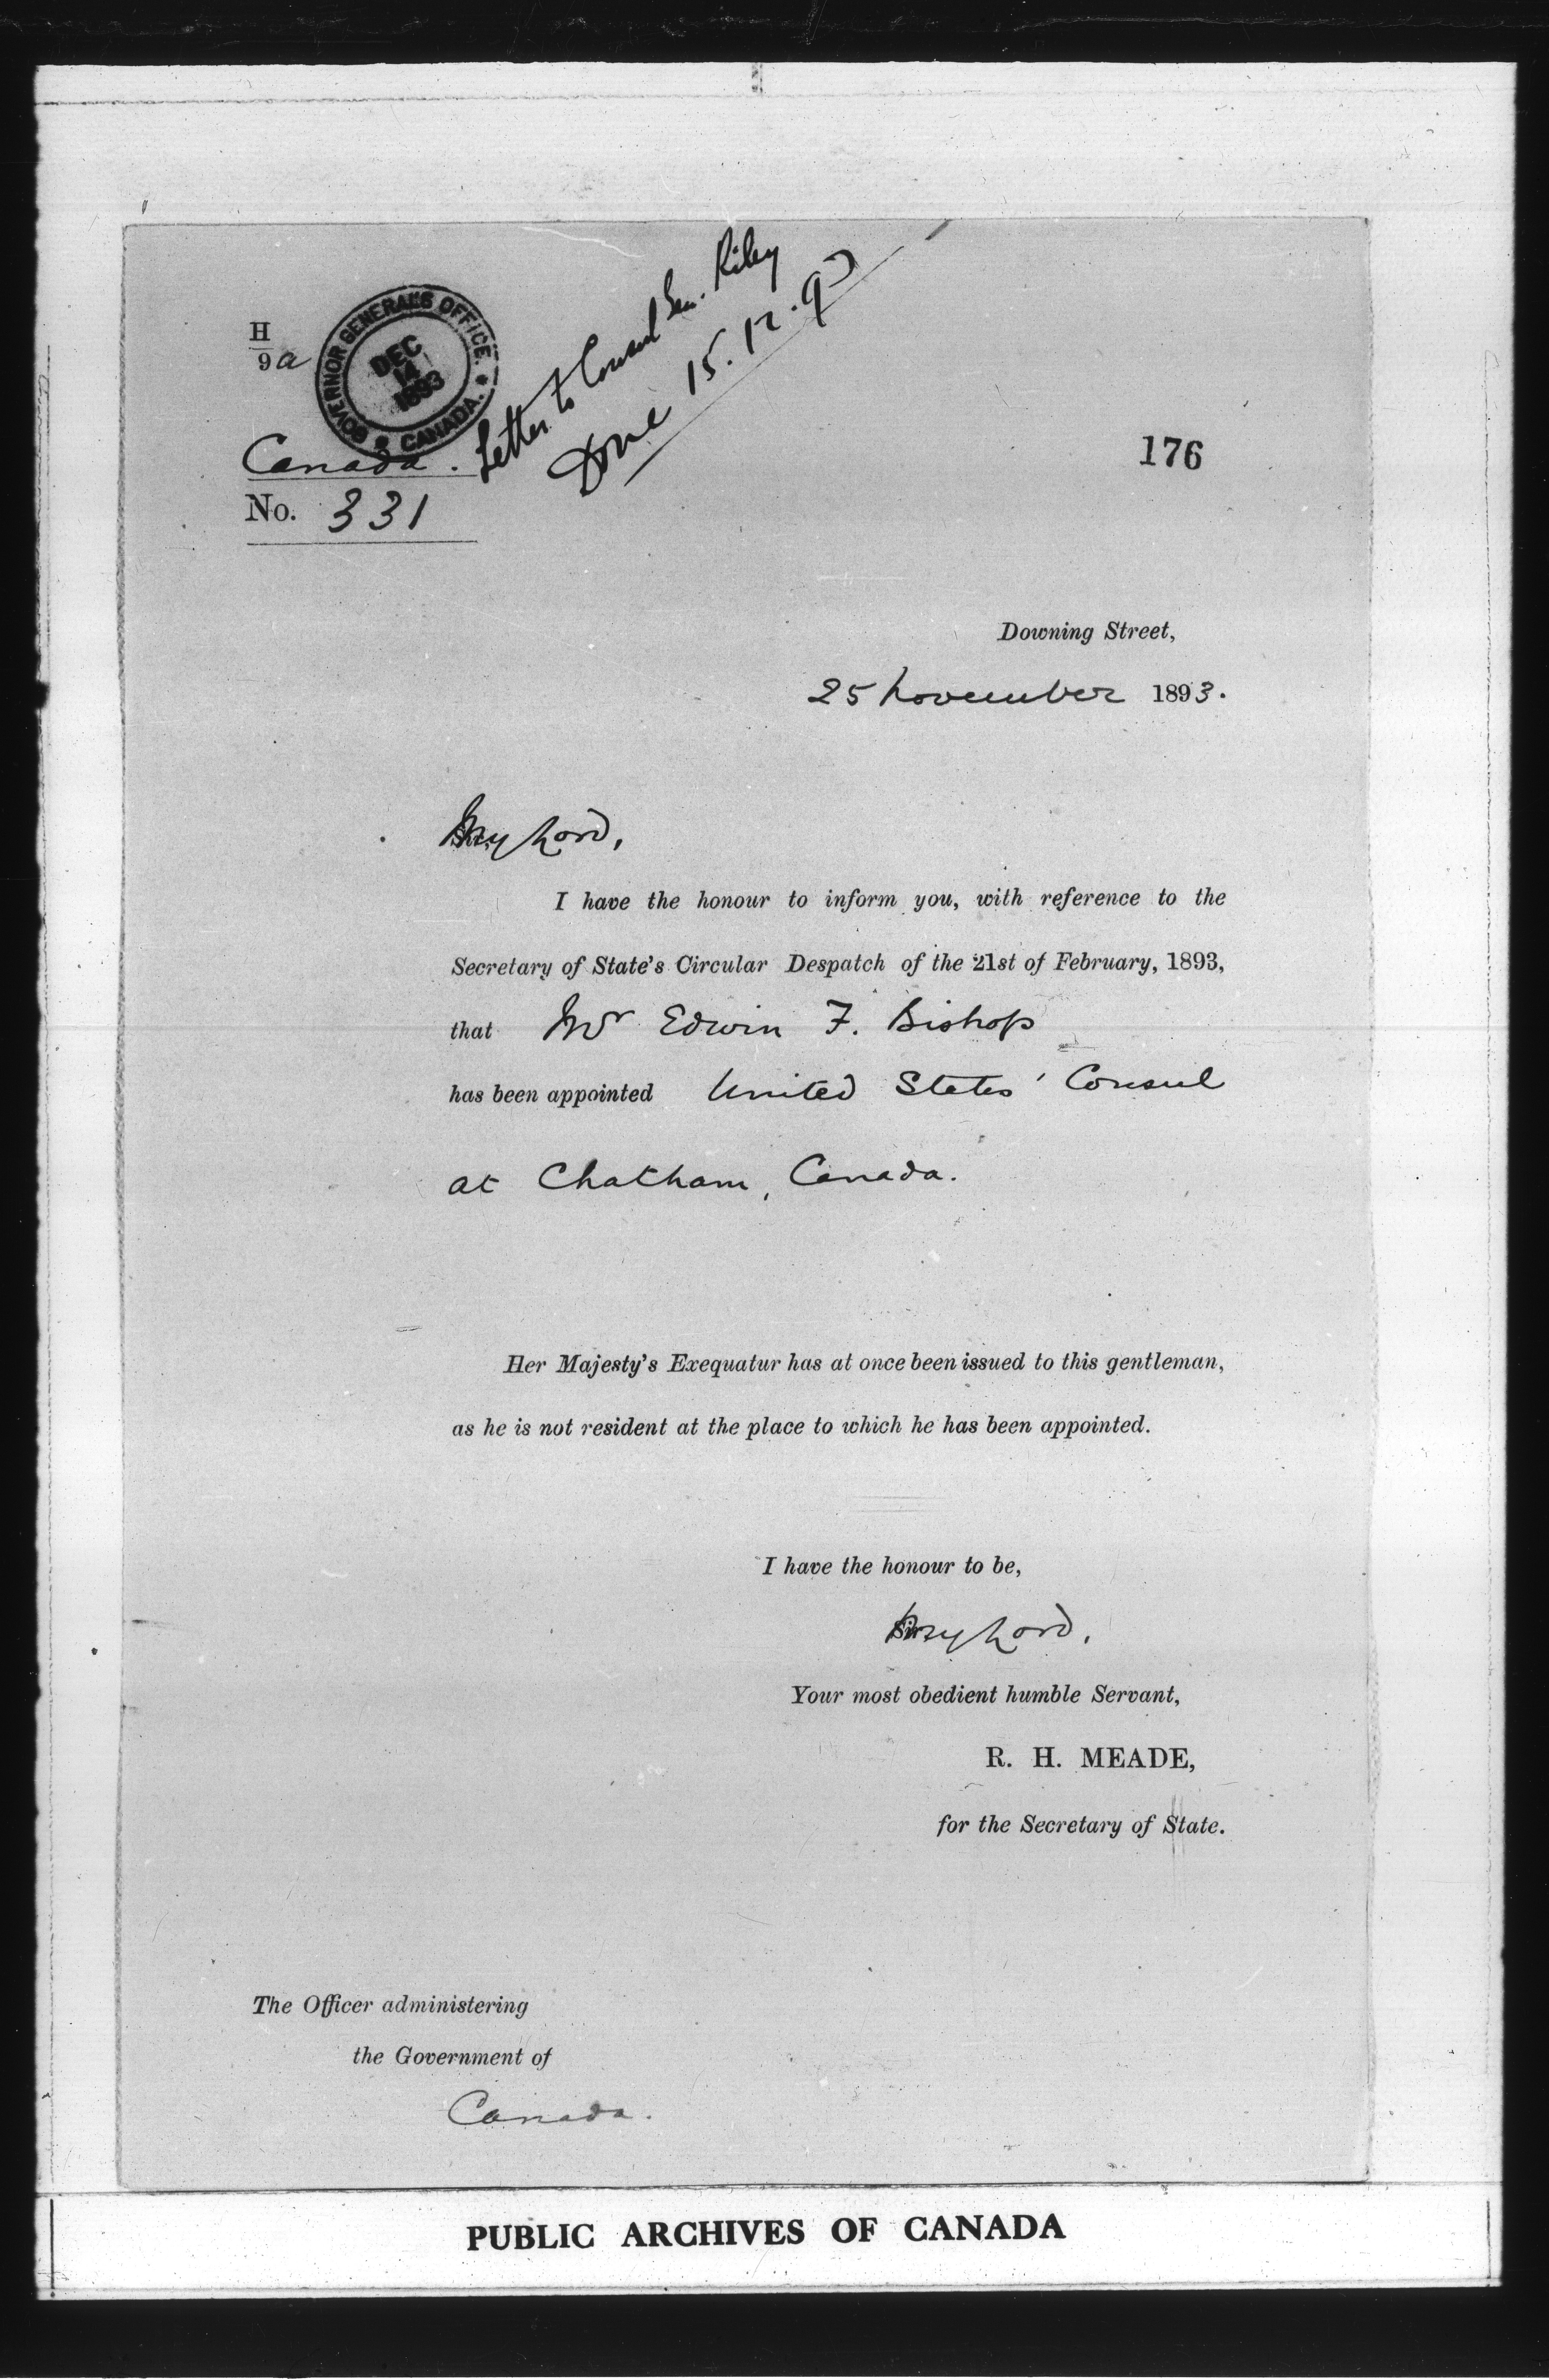 H
9a
GOVERNOR GENERAL'S OFFICE.
DEC
14
1893
CANADA.
Letter to Consul Gen. Riley
Done 15.12.93
Canada.
No. 331
176
Downing Street,
25 November 1893.
My Lord,
I have the honour to inform you, with reference to the
Secretary of State's Circular Despatch of the 21st of February, 1893,
that Mr Edwin F. Bishop
has been appointed United States' Consul
at Chatham, Canada.
Her Majesty's Exequatur has at once been issued to this gentleman,
as he is not resident at the place to which he has been appointed.
I have the honour to be,
My Lord,
Your most obedient humble Servant,
R. H. MEADE,
for the Secretary of State.
The Officer administering
the Government of
Canada.
PUBLIC ARCHIVES OF CANADA